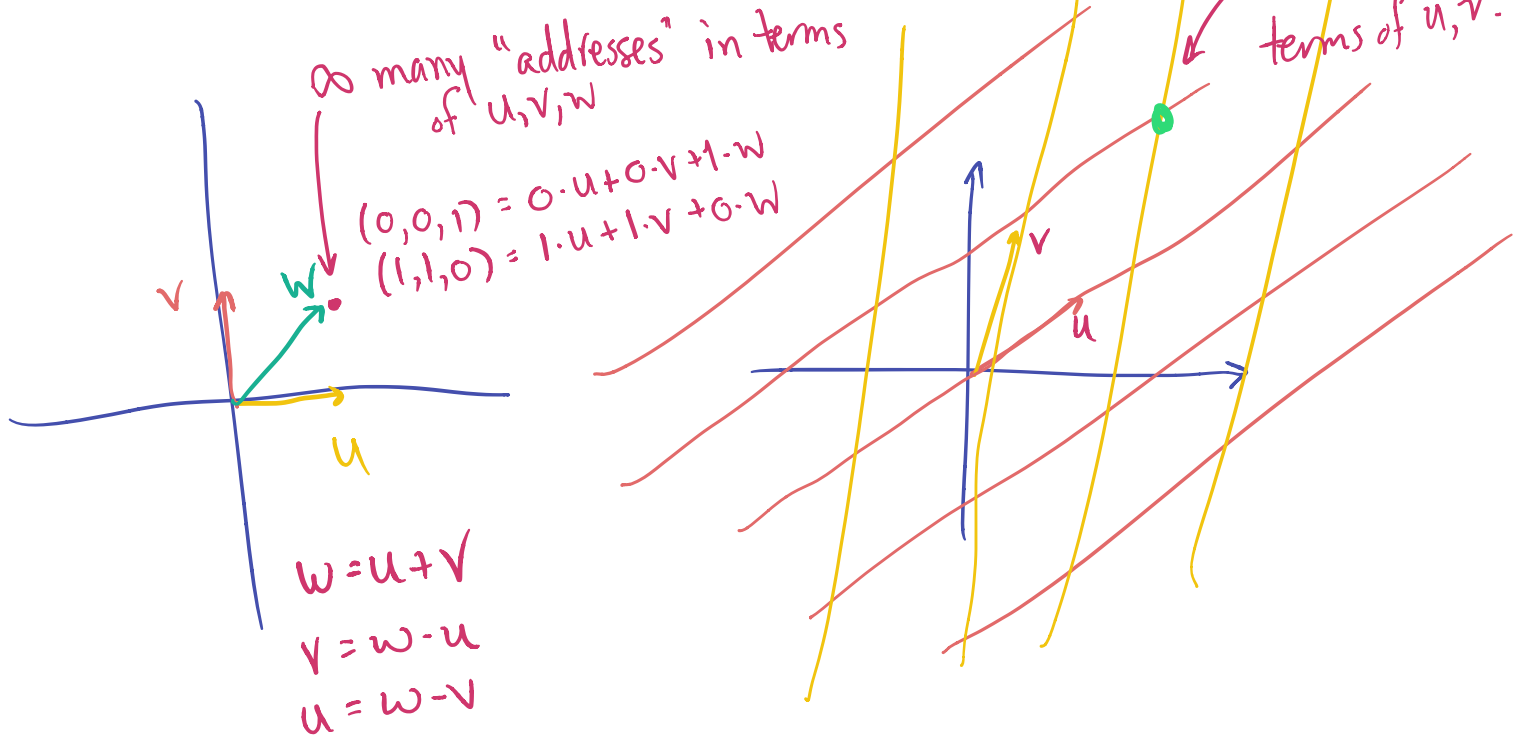 ∞ many "addresses" in terms
of u,v,w
(0,0,1) = 0·u+0·v+1·w
(1,1,0) = 1·u+1·v+0·w
v
w
u
w=u+v
v=w-u
u=w-v
terms of u,v.
v
u